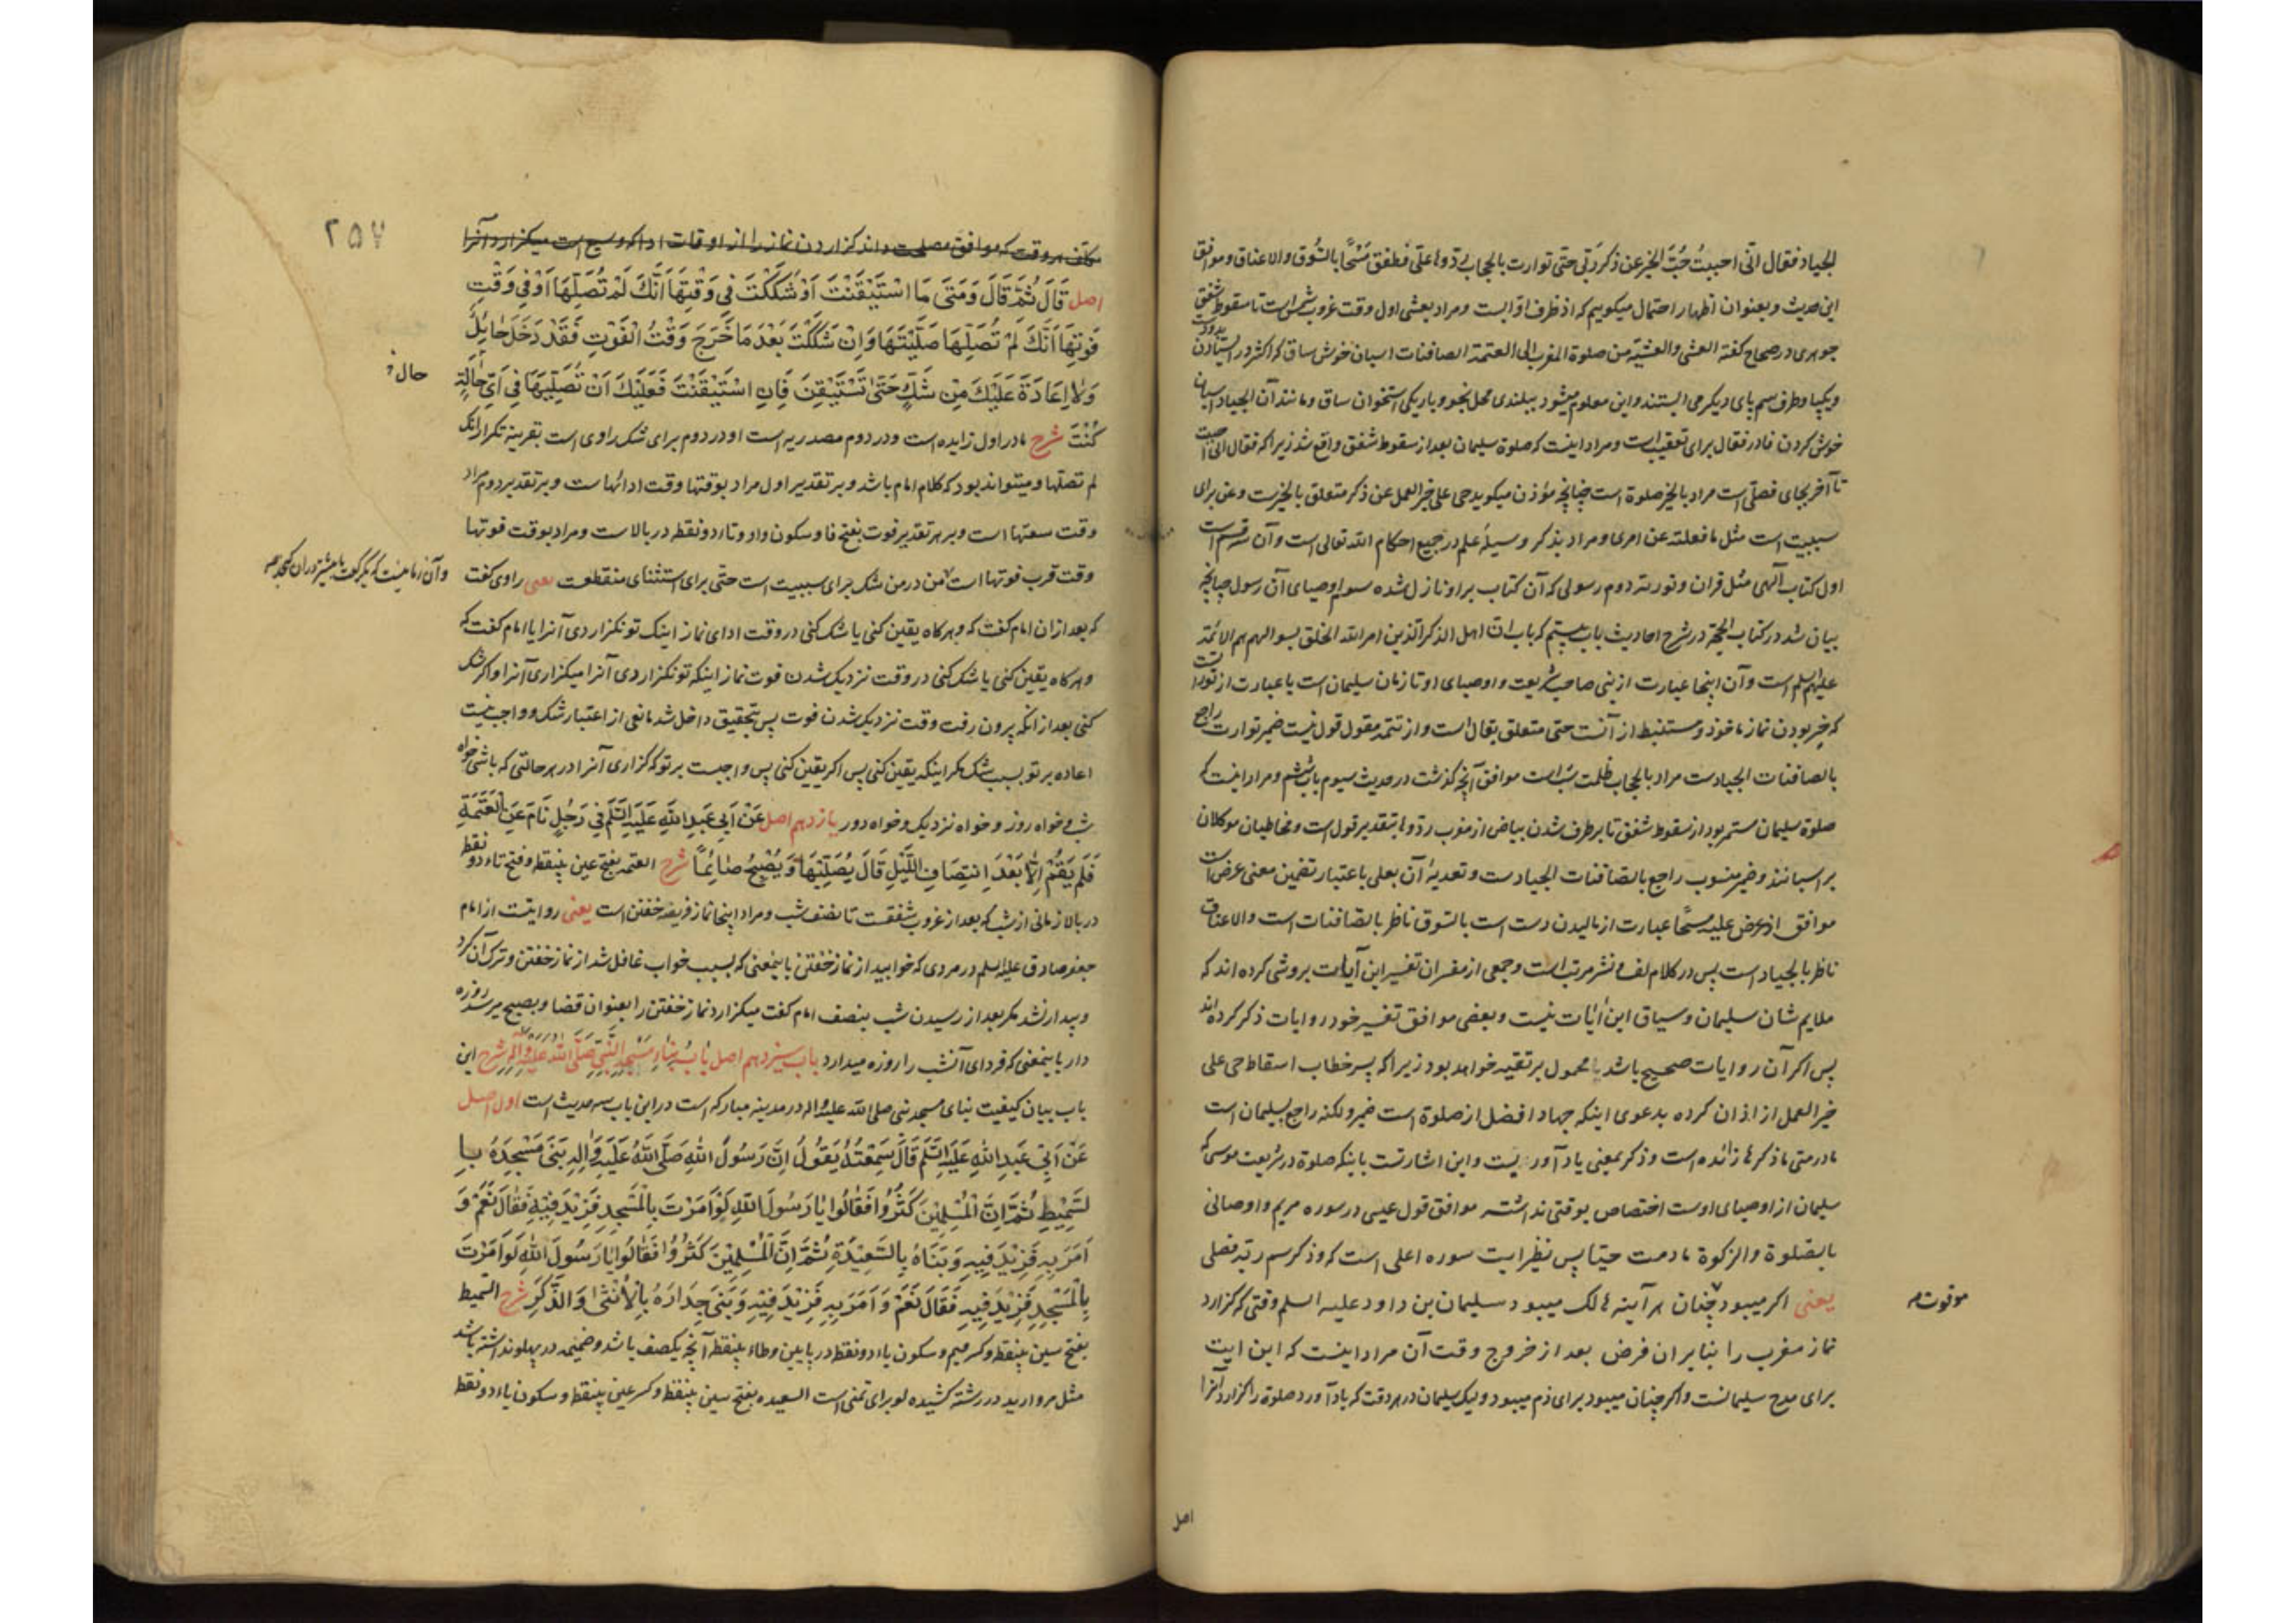 الجیاد فقال انی احببتُ حُبَّ الخیر عن ذکر ربّی حتی توارت بالحجاب ردّوها علیّ فطفق مَسْحًا بالسّوق والاعناق و موافق
این حدیث و بعنوان اظهار احتمال میکوییم که اذ ظرف اوّابست و مراد بعشی اول وقت غروب شمس است تا سقوط شفق
جوهری در صحاح کفته العشی والعشیّة من صلوة المغرب الی العتمة الصافنات اسبان خوش ساق که اکثر در ایستادن بدو دست
و یکپا و طرف سم پای دیکر می ایستند و این معلوم میشود ببلندی محل بخو و باریکی استخوان ساق و مانند آن الجیاد اسبان
خوش کردن فا در فقال برای تعقیب است و مراد اینست که صلوة سلیمان بعد از سقوط شفق واقع شد زیرا که فقال انی احببت
تا آخر بجای فصلّی است مراد بالخیر صلوة است چنانچه مؤذن میکوید حی علی خیر العمل عن ذکر متعلق بالخیرست و عن برای
سببیت است مثل ما فعلته عن امری و مراد بذکر وسیلهٔ علم در جمیع احکام الله تعالی است و آن سه قسم است
اول کتاب آلهی مثل قران و توریة دوم رسولی که آن کتاب بر او نازل شده سوم اوصیای آن رسول چنانچه
بیان شد در کتاب الحجّة در شرح احادیث باب بیستم که باب انّ اهل الذکر الذین امر الله الخلق بسوالهم هم الائمّة
علیهم السلم است و آن اینجا عبارت از نبی صاحب شریعت و اوصیای او تا زمان سلیمان است یا عبارت از توریت
که خیر بودن نماز ماخوذ و مستنبط از آنست حتی متعلق بقال است و از تتمه مقول قول نیست ضمیر توارت راجع
بالصافنات الجیادست مراد بالحجاب ظلمت شب است موافق آنچه کذشت در حدیث سیوم باب ششم و مراد اینست که
صلوة سلیمان مستمر بود از سقوط شفق تا برطرف شدن بیاض از مغرب ردّوها بتقدیر قول است و مخاطبان موکلان
بر اسبانند و ضمیر منصوب راجع بالصافنات الجیادست و تعدیهٔ آن بعلی باعتبار تضمین معنی عرض است
موافق اذ عرض علیه مسحًا عبارت از مالیدن دست است بالسّوق ناظر بالصّافنات است والاعناق
ناظر بالجیاد است پس در کلام لف و نشر مرتب است و جمعی از مفسران تفسیر این آیات بروشی کرده اند که
ملایم شان سلیمان و سیاق این آیات نیست و بعضی موافق تفسیر خود روایات ذکر کرده اند
پس اکر آن روایات صحیح باشد محمول بر تقیه خواهد بود زیرا که پسر خطاب اسقاط حی علی
خیر العمل از اذان کرده بدعوی اینکه جهاد افضل از صلوة است ضمیر ولکنه راجع بسلیمان است
ما در متی ما ذکرها زائده است و ذکر بمعنی یاد آوریست و این اشارتست باینکه صلوة در شریعت موسی که
سلیمان از اوصیای اوست اختصاص بوقتی نداشته موافق قول عیسی در سوره مریم و اوصانی
بالصّلوة والزکوة ما دمت حیّا پس نظیر ایت سوره اعلی است که و ذکر اسم ربّه فصلّی
یعنی اکر میبود چنان هر آینه هالک میبود سلیمان بن داود علیه السلم وقتی که کزارد
نماز مغرب را بنابر ان فرض بعد از خروج وقت آن مراد اینست که این ایت
برای مدح سلیمانست و اکر چنان میبود برای ذم میبود ولیک سلیمان در هر وقت که یاد آورد صلوة را کزارد آنرا
اصل
۲۵۷
مکلف هر وقت که موافق مصلحت داند کزاردن نماز را از اوقات ادا که وسیع است میکزارد آنرا
اصل قَالَ ثُمَّ قَالَ وَمَتَی مَا اسْتَیْقَنْتَ اَوْ شَکَکْتَ فِی وَقْتِهَا اَنَّکَ لَمْ تُصَلِّهَا اَوْ فِی وَقْتِ
فَوْتِهَا اَنَّکَ لَمْ تُصَلِّهَا صَلَّیْتَهَا وَاِنْ شَکَکْتَ بَعْدَ مَا خَرَجَ وَقْتُ الْفَوْتِ فَقَدْ دَخَلَ حَائِلٌ
وَلَا اِعَادَةَ عَلَیْکَ مِنْ شَکٍّ حَتَّی تَسْتَیْقِنَ فَاِنِ اسْتَیْقَنْتَ فَعَلَیْکَ اَنْ تُصَلِّیَهَا فِی اَیِّ حَالَةٍ
کُنْتَ شرح ما در اول زایده است و در دوم مصدریه است او در دوم برای شک راوی است بقرینه تکرار انک
لم تصلّها و میتواند بود که کلام امام باشد و بر تقدیر اول مراد بوقتها وقت ادائهاست و بر تقدیر دوم مراد
وقت سعتها است و بر هر تقدیر فوت بفتح فا و سکون واو و تاء دو نقطه در بالاست و مراد بوقت فوتها
وقت قرب فوتها است من در من شک برای سببیت است حتّی برای استثنای منقطعست یعنی راوی کفت
که بعد ازان امام کفت که و هر کاه یقین کنی یا شک کنی در وقت ادای نماز اینک تو نکزاردی آنرا یا امام کفت که
و هر کاه یقین کنی یا شک کنی در وقت نزدیک شدن فوت نماز اینکه تو نکزاردی آنرا میکزاری آنرا و اکر شک
کنی بعد از انکه بیرون رفت وقت نزدیک شدن فوت پس بتحقیق داخل شد مانعی از اعتبار شک و واجب نیست
اعاده بر تو بسبب شک مکر اینکه یقین کنی پس اکر یقین کنی پس واجبست بر تو که کزاری آنرا در هر حالتی که باشی خواه
شب و خواه روز و خواه نزدیک و خواه دور یازدهم اصل عَنْ اَبِی عَبْدِ اللهِ عَلَیْهِ السَّلَم فِی رَجُلٍ نَامَ عَنِ الْعَتَمَةِ
فَلَمْ یَقُمْ اِلَّا بَعْدَ اِنْتِصَافِ اللَّیْلِ قَالَ یُصَلِّیهَا وَیُصْبِحُ صَائِمًا شرح العتمه بفتح عین بینقطه و فتح تاء دو نقطه
در بالا زمانی از شب که بعد از غروب شفقست تا نصف شب و مراد اینجا نماز فریضه خفتن است یعنی روایتست از امام
جعفر صادق علیه السلم در مردی که خوابید از نماز خفتن باینمعنی که بسبب خواب غافل شد از نماز خفتن و ترک آن کرد
و بیدار نشد مکر بعد از رسیدن شب بنصف امام کفت میکزارد نماز خفتن را بعنوان قضا و بصبح میرسد روزه
دار باینمعنی که فردای آنشب را روزه میدارد باب سیزدهم اصل بَابُ بِنَاءِ مَسْجِدِ النَّبِیِّ صَلَّی اللهُ عَلَیْهِ وَآلِهِ شرح این
باب بیان کیفیت بنای مسجد نبی صلی الله علیه واله در مدینه مبارکه است در این باب سه حدیث است اول اصل
عَنْ اَبِی عَبْدِ اللهِ عَلَیْهِ السَّلَم قَالَ سَمِعْتُهُ یَقُولُ اِنَّ رَسُولَ اللهِ صَلَّی اللهُ عَلَیْهِ وَآلِهِ بَنَی مَسْجِدَهُ بِا
لسَّمِیْطِ ثُمَّ اِنَّ الْمُسْلِمِیْنَ کَثُرُوا فَقَالُوا یَا رَسُولَ اللهِ لَوْ اَمَرْتَ بِالْمَسْجِدِ فَزِیْدَ فِیْهِ فَقَالَ نَعَمْ وَ
اَمَرَ بِهِ فَزِیْدَ فِیهِ وَبَنَاهُ بِالسَّعِیْدَةِ ثُمَّ اِنَّ الْمُسْلِمِیْنَ کَثُرُوا فَقَالُوا یَا رَسُولَ اللهِ لَوْ اَمَرْتَ
بِالْمَسْجِدِ فَزِیْدَ فِیهِ فَقَالَ نَعَمْ وَاَمَرَ بِهِ فَزِیْدَ فِیْهِ وَبَنَی جِدَارَهُ بِالْاُنْثَی وَالذَّکَرِ شرح السّمیط
بفتح سین بینقطه و کسر میم و سکون یاء دو نقطه در پایین و طاء بینقطه آنچه یکصف باشد و ضمیمه در پهلو نداشته باشد
مثل مروارید در رشته کشیده لو برای تمنی است السعیده بفتح سین بینقطه و کسر عین بینقطه و سکون یاء دو نقطه